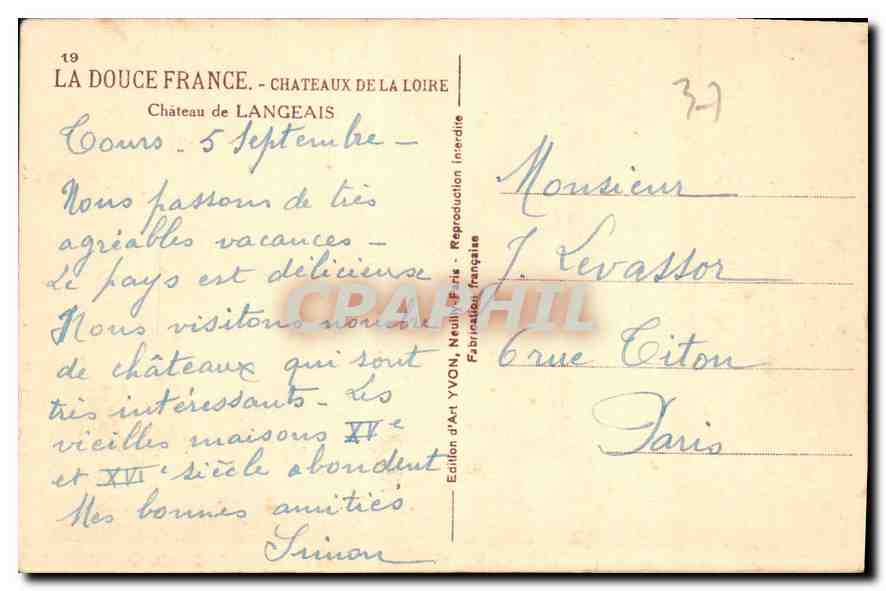 19
LA DOUCE FRANCE. - CHATEAUX DE LA LOIRE
Château de LANGEAIS
Tours - 5 Septembre -
Nous passons de très
agréables vacances -
Le pays est délicieuse
Nous visitons nombre
de châteaux qui sont
très intéressants - Les
vieilles maisons XVe
et XVIe siècle abondent
Mes bonnes amitiés
Simon
Edition d'Art YVON, Neuilly-Paris - Reproduction interdite
Fabrication française
37
Monsieur
J. Levassor
6 rue Titon
Paris
CPAPHIL